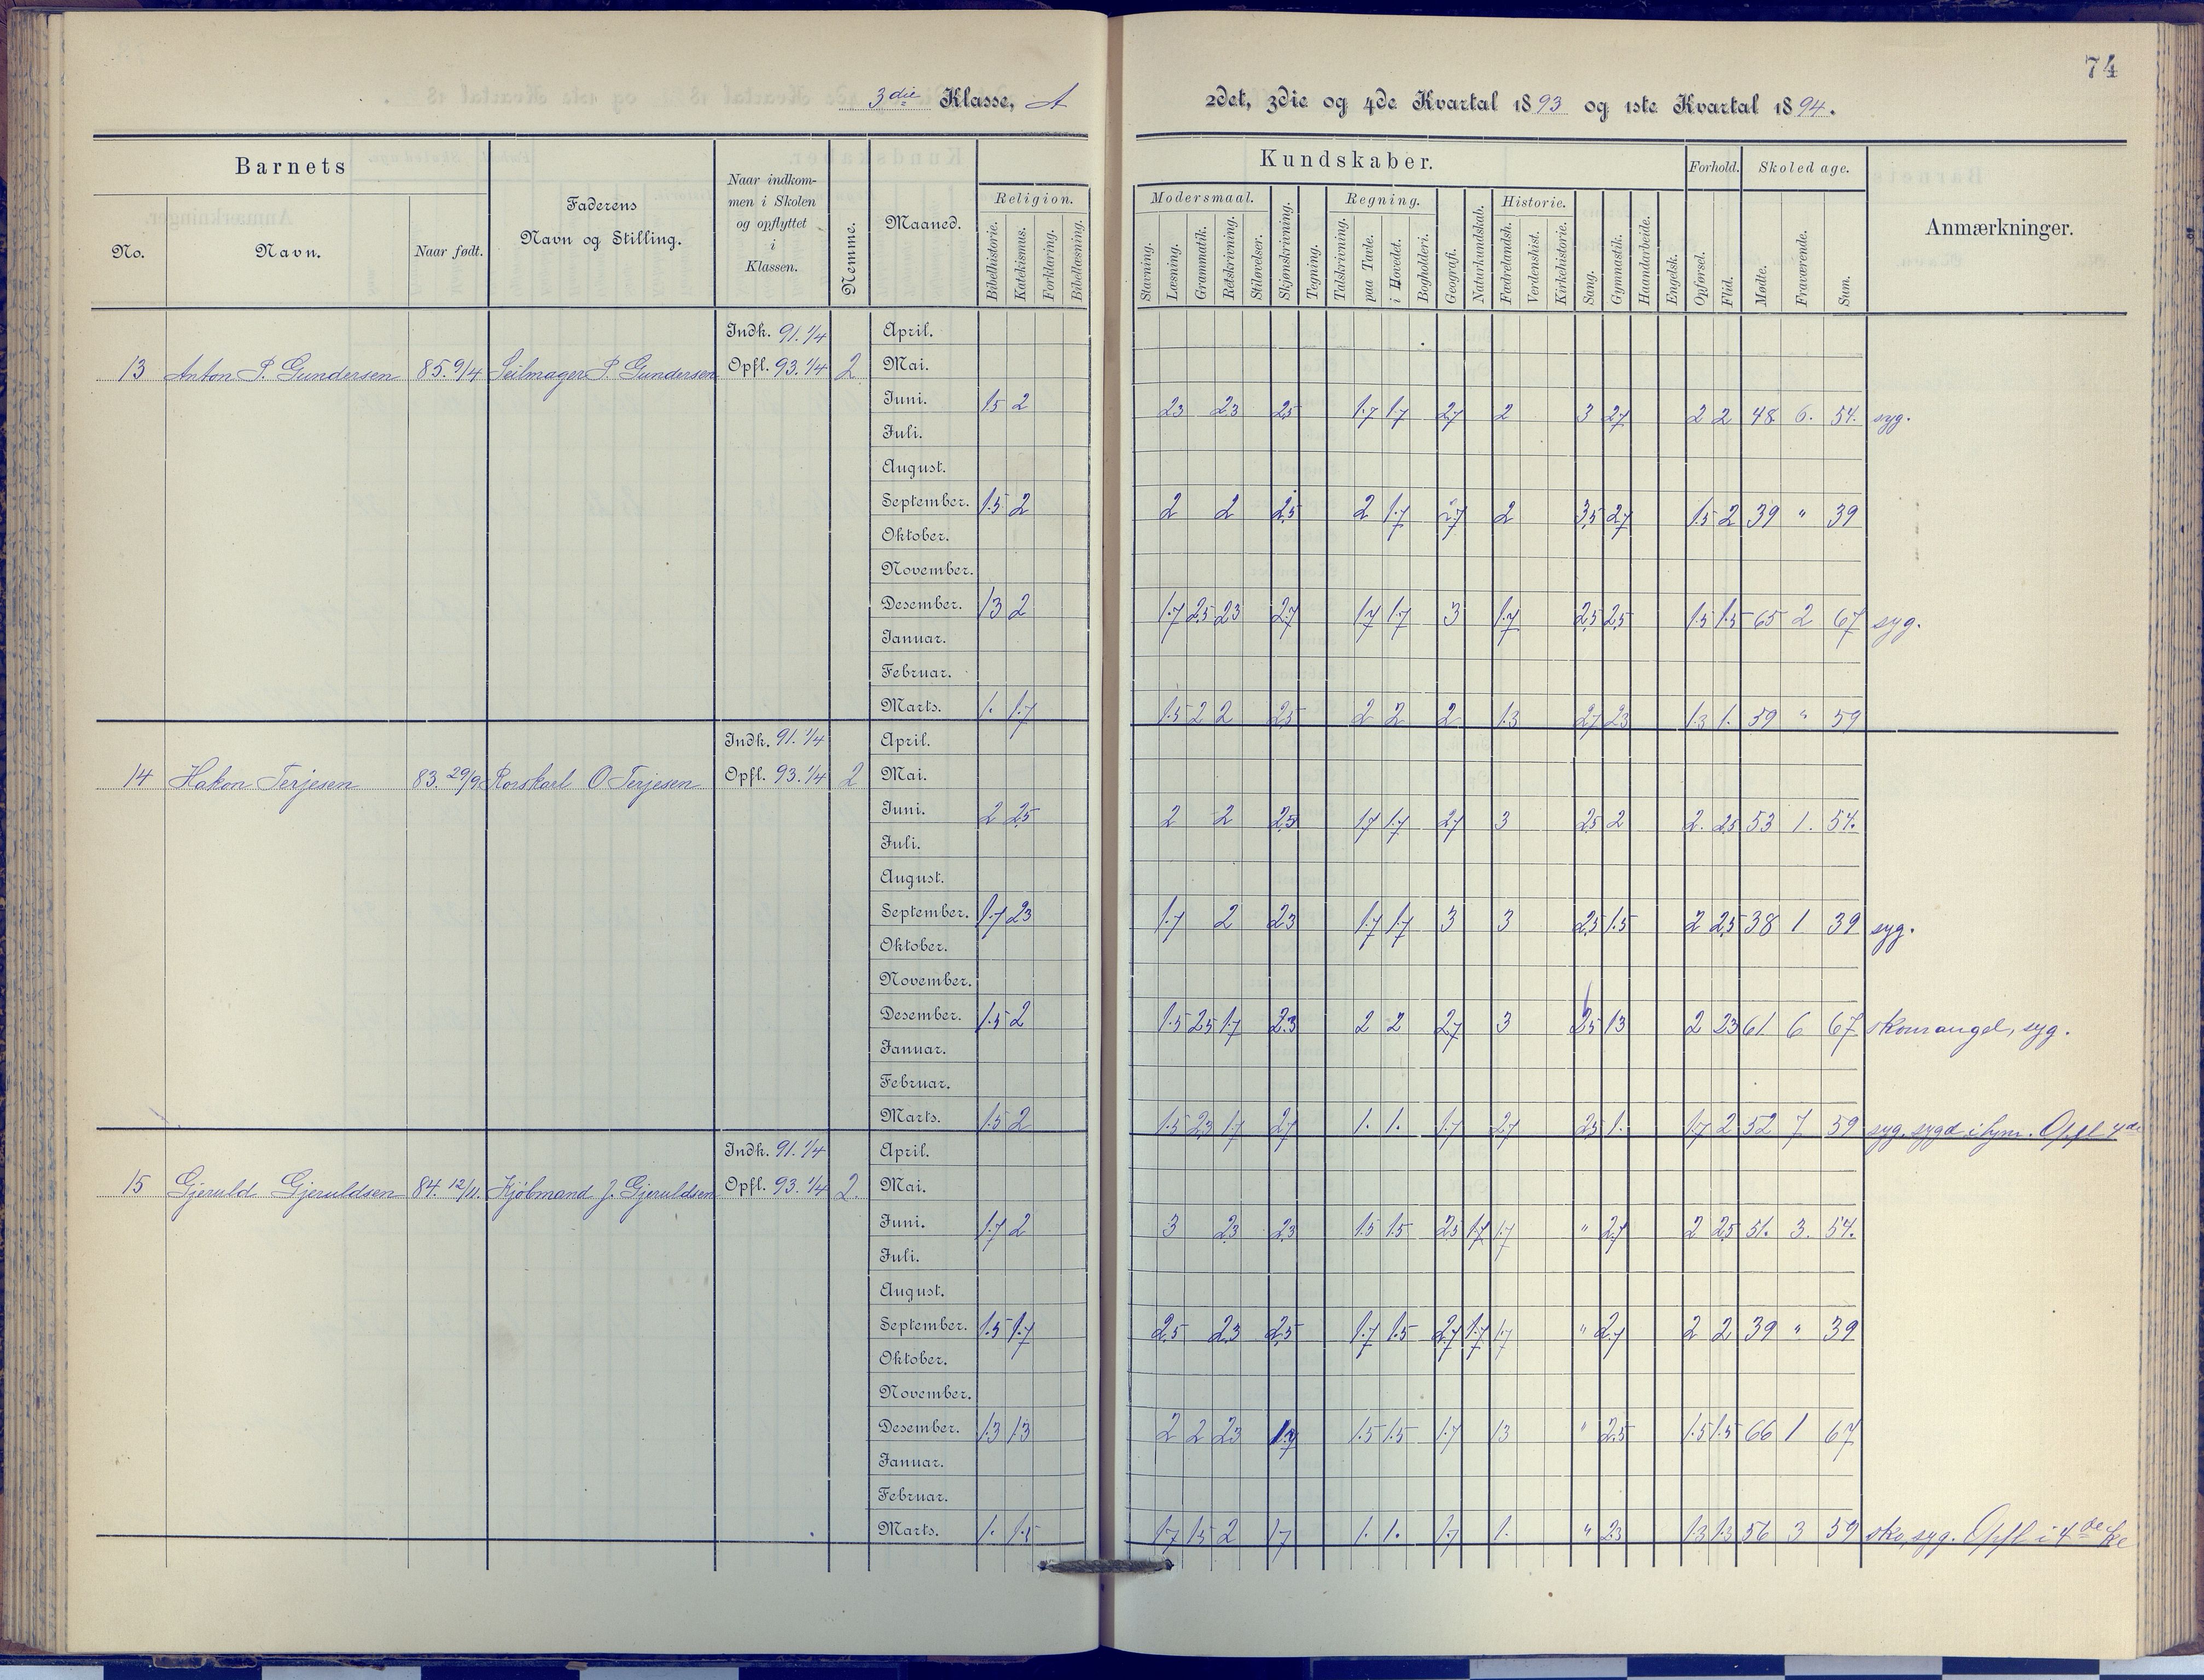 74
3die Klasse, A
2det, 3die og 4de Kvartal 1893 og 1ste Kvartal 1894.
Barnets
No.
Navn.
Naar født.
Faderens
Navn og Stilling.
Naar indkom-
men i Skolen
og opflyttet
i
Klassen.
Nemme.
Maaned.
Kundskaber.
Religion.
Bibelhistorie.
Katekismus.
Forklaring.
Bibellæsning.
Modersmaal.
Stavning.
Læsning.
Grammatik.
Retskrivning.
Stiløvelser.
Skjønskrivning.
Tegning.
Regning.
Talskrivning.
paa Tavle.
i Hovedet.
Bogholderi.
Geografi.
Naturkundskab.
Historie.
Fædrelandsh.
Verdenshist.
Kirkehistorie.
Sang.
Gymnastik.
Haandarbeide.
Engelsk.
Forhold.
Opførsel.
Flid.
Skoledage.
Mødte.
Fraværende.
Sum.
Anmærkninger.
13 Anton P. Gundersen 85. 9/4 Seilmager P. Gundersen Indk. 91. 1/4 Opfl. 93. 1/4 2
April.
Mai.
Juni. 1.5 2 2.3 2.3 2.5 1.7 1.7 2.7 2 3 2.7 2 2 48 6. 54. syg.
Juli.
August.
September. 1.5 2 2 2 2.5 2 1.7 2.7 2 3.5 2.7 1.5 2 39 " 39
Oktober.
November.
Desember. 1.3 2 1.7 2.5 2.3 2.7 1.7 1.7 3 1.7 2.5 2.5 1.5 1.5 65 2 67 syg.
Januar.
Februar.
Marts. 1. 1.7 1.5 2 2 2.5 2 2 2 1.3 2.7 2.3 1.3 1. 59 " 59
14 Hakon Terjesen 83. 29/9 Rorskarl O Terjesen Indk. 91. 1/4 Opfl. 93. 1/4 2
April.
Mai.
Juni. 2 2.5 2 2 2.5 1.7 1.7 2.7 3 2.5 2 2. 2.5 53 1. 54.
Juli.
August.
September. 1.7 2.3 1.7 2 2.3 1.7 1.7 3 3 2.5 1.5 2 2.5 38 1 39 syg.
Oktober.
November.
Desember. 1.5 2 1.5 2.5 1.7 2.3 2 2 2.7 3 2.5 1.3 2 2.3 61. 6 67 skomangel, syg.
Januar.
Februar.
Marts. 1.5 2 1.5 2.3 1.7 2.7 1. 1. 1.7 2.7 2.5 1. 1.7 2 52 7 59 syg, sygd i hjm. Opfl 4de
15 Gjeruld Gjeruldsen 84. 12/11. Kjøbmand J. Gjeruldsen Indk. 91. 1/4 Opfl. 93. 1/4 2.
April.
Mai.
Juni. 1.7 2 3 2.3 2.3 1.5 1.5 2.5 1.7 1.7 " 2.7 2 2.5 51. 3. 54.
Juli.
August.
September. 1.5 1.7 2.5 2.3 2.5 1.7 1.5 2.7 1.7 1.7 " 2.7 2 2 39 " 39
Oktober.
November.
Desember. 1.3 1.3 2 2 2.3 1.7 1.5 1.5 1.7 1.3 " 2.5 1.5 1.5 66 1 67
Januar.
Februar.
Marts. 1. 1.5 1.7 1.5 2 1.7 1. 1. 1.7 1. " 2.3 1.3 1.3 56 3 59 sko, syg. Opfl i 4de